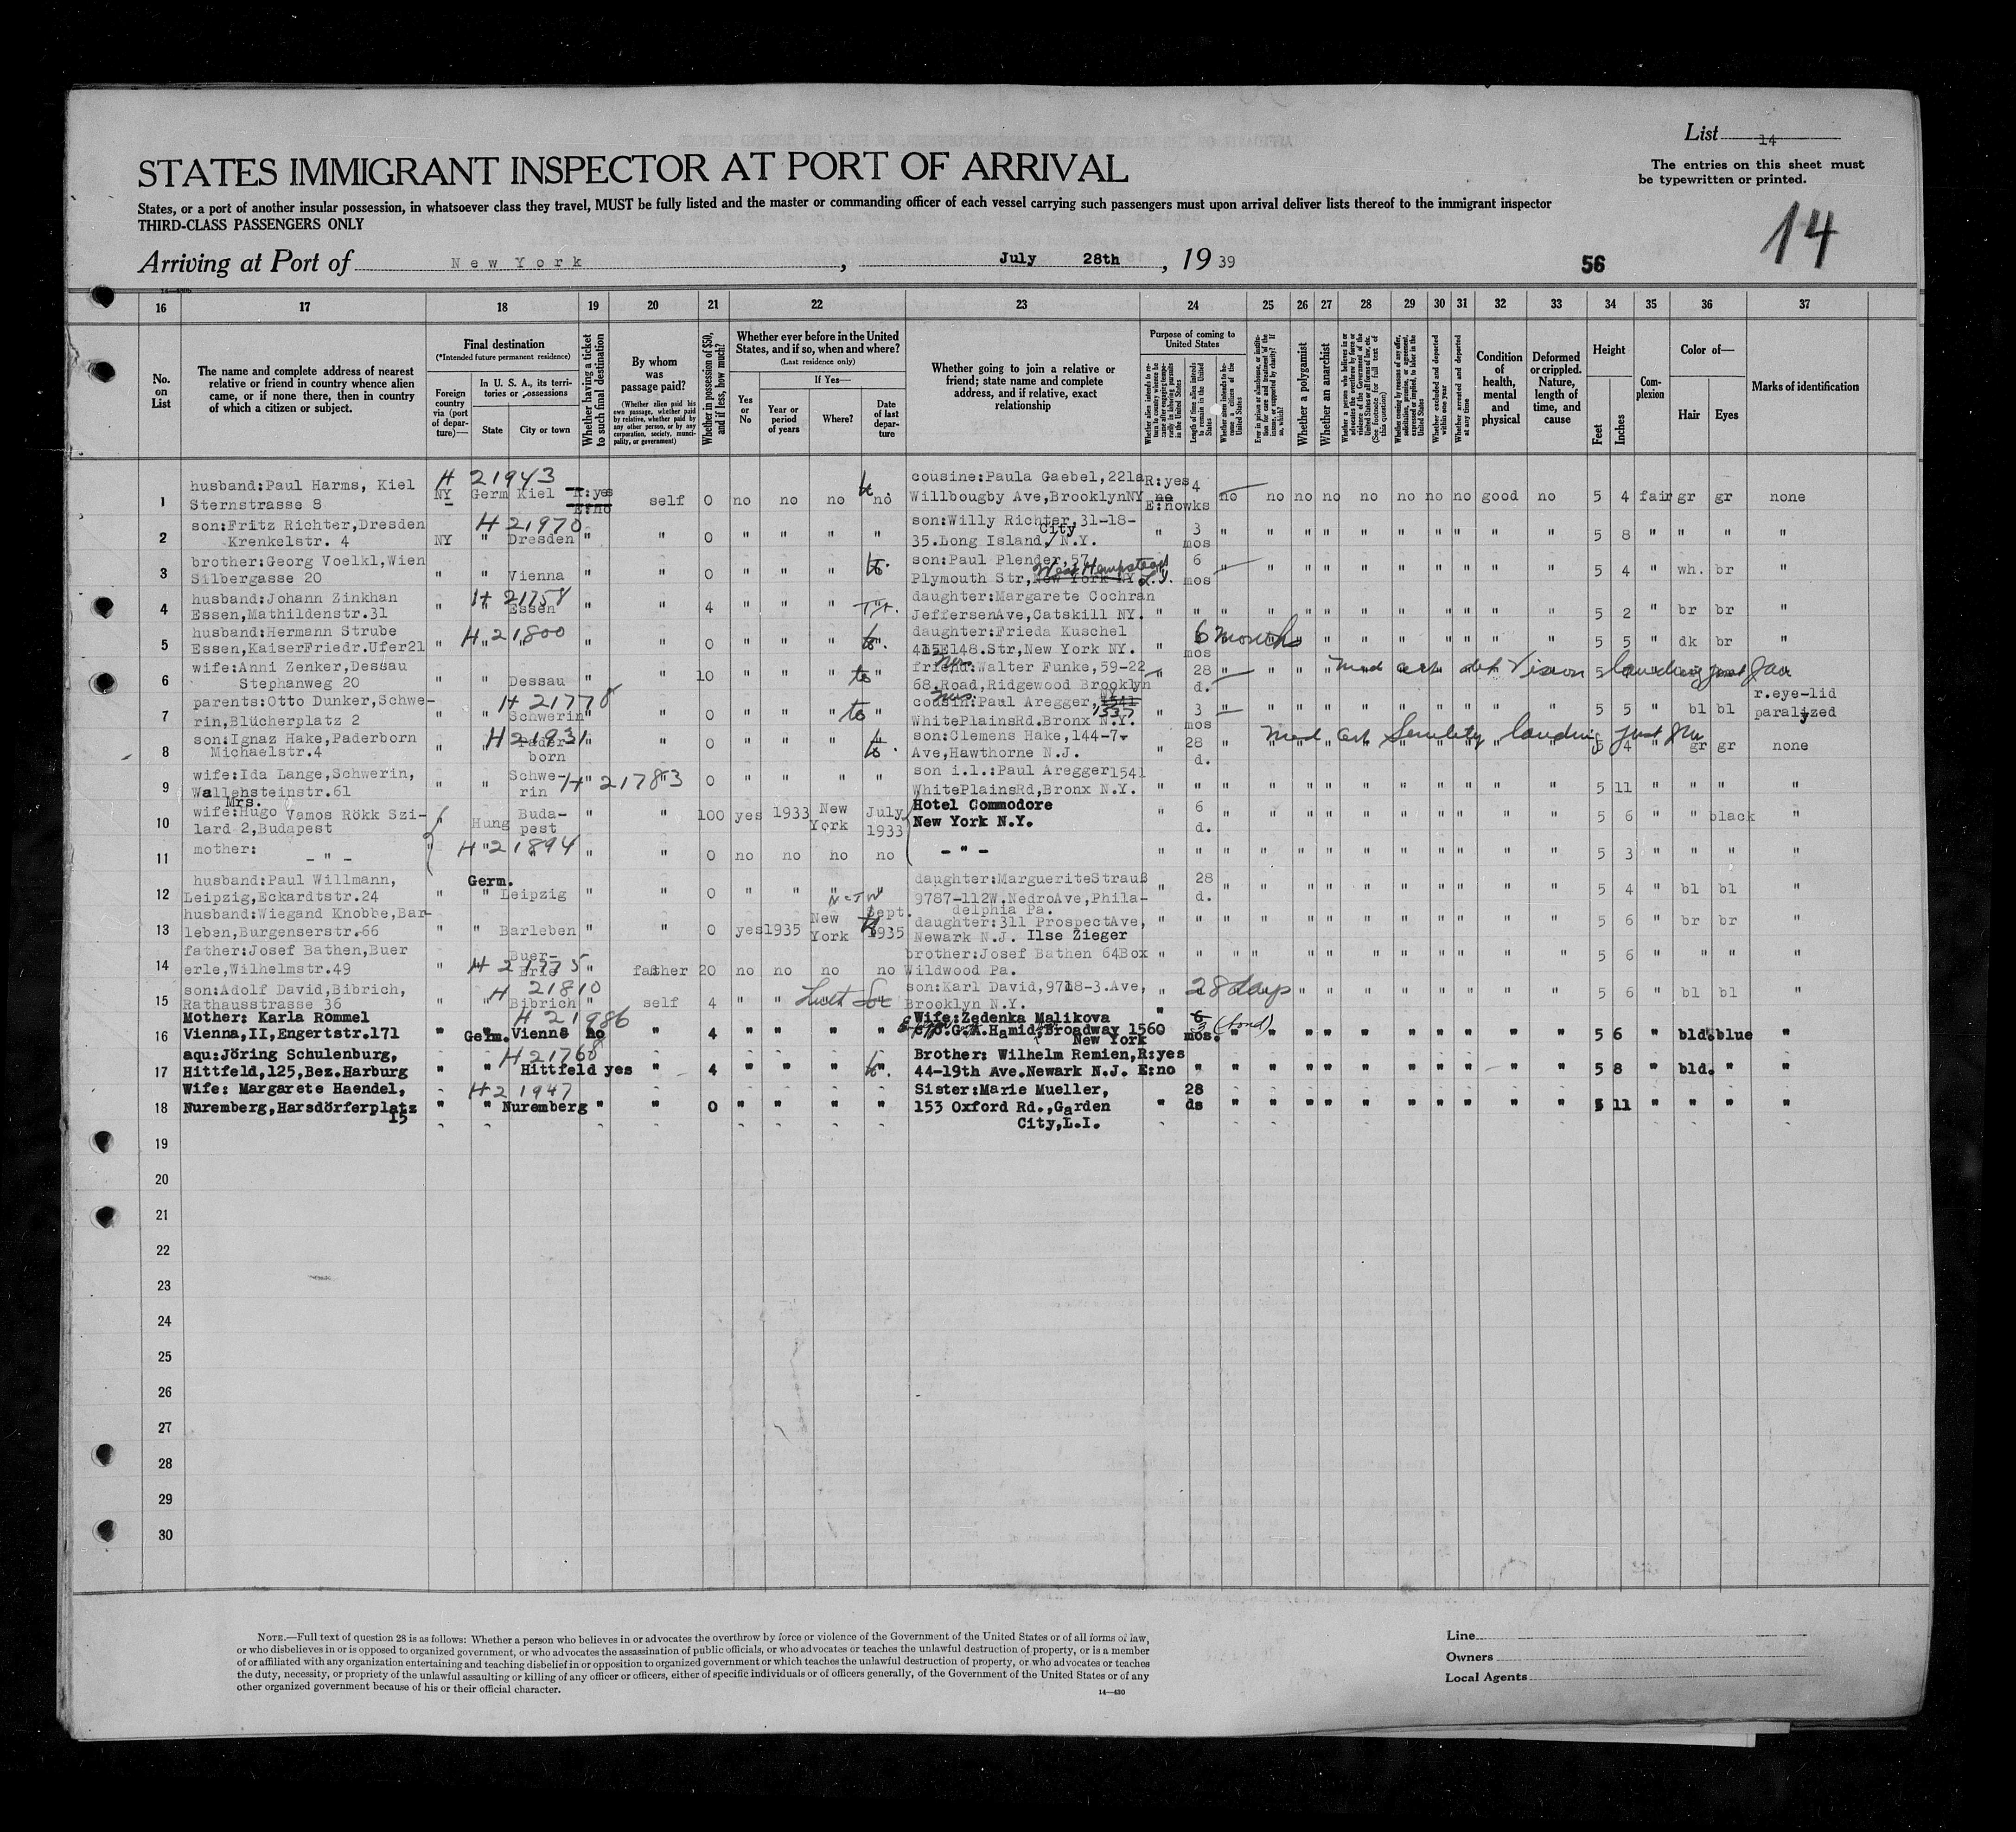 List 14
STATES IMMIGRANT INSPECTOR AT PORT OF ARRIVAL
The entries on this sheet must
be typewritten or printed.
States, or a port of another insular possession, in whatsoever class they travel, MUST be fully listed and the master or commanding officer of each vessel carrying such passengers must upon arrival deliver lists thereof to the immigrant inspector
THIRD-CLASS PASSENGERS ONLY
14
Arriving at Port of New York, July 28th, 1939
56
16 17 18 19 20 21 22 23 24 25 26 27 28 29 30 31 32 33 34 35 36 37
No. on List
The name and complete address of nearest relative or friend in country whence alien came, or if none there, then in country of which a citizen or subject.
Final destination
(*Intended future permanent residence)
Foreign country via (port of departure)—
In U. S. A., its territories or possessions
State
City or town
Whether having a ticket to such final destination
By whom was passage paid?
(Whether alien paid his own passage, whether paid by relative, whether paid by any other person, or by any corporation, society, municipality, or government)
Whether in possession of $50, and if less, how much?
Whether ever before in the United States, and if so, when and where?
(Last residence only)
Yes or No
If Yes—
Year or period of years
Where?
Date of last departure
Whether going to join a relative or friend; state name and complete address, and if relative, exact relationship
Purpose of coming to United States
Whether a polygamist
Whether an anarchist
Whether arrested and deported at any time
Condition of health, mental and physical
Deformed or crippled. Nature, length of time, and cause
Height
Feet
Inches
Complexion
Color of—
Hair
Eyes
Marks of identification
1 husband:Paul Harms, Kiel Sternstrasse 8 NY H 21943 Germ Kiel R:yes E:no self 0 no no no no cousine:Paula Gaebel,221a Willbougby Ave,BrooklynNY R:yes no E:no 4 wks no no no no no no no no good no 5 4 fair gr gr none
2 son:Fritz Richter,Dresden Krenkelstr. 4 NY H 21970 " Dresden " " 0 " " " " son:Willy Richter,31-18-35.Long Island City N.Y. " 3 mos " " " " " " " " " " 5 8 " " " "
3 brother:Georg Voelkl,Wien Silbergasse 20 " " Vienna " " 0 " " " son:Paul Plender,57 Plymouth Str,New York NY West Hempstead L.I. 6 mos " " " " " " " " " 5 4 " wh. br "
4 husband:Johann Zinkhan Essen,Mathildenstr.31 " H 21758 " Essen " " 4 " " " daughter:Margarete Cochran JeffersenAve,Catskill NY. " " " " " " " " " " " " 5 2 " br br "
5 husband:Hermann Strube Essen,KaiserFriedr.Ufer21 " H 21800 " " " " 0 " " " daughter:Frieda Kuschel 415E148.Str,New York NY. " 6 months mos " " " " " " " 5 5 " dk br "
6 wife:Anni Zenker,Dessau Stephanweg 20 " " Dessau " " 10 " " " " friend:Walter Funke,59-22 68.Road,Ridgewood Brooklyn 28 d. " " " med cert def Vision landing 5
7 parents:Otto Dunker,Schwerin,Blücherplatz 2 " H 21778 " Schwerin " " 0 " " " " cousin:Paul Aregger,1541 1537 WhitePlainsRd.Bronx N.Y. " 3 mos " " " " " " " " " 5 5 " bl bl r.eye-lid paralyzed
8 son:Ignaz Hake,Paderborn Michaelstr.4 " H 21931 " Paderborn " " 0 " " " son:Clemens Hake,144-7-Ave,Hawthorne N.J. " 28 d. " med cert Senility landing 5 4 gr gr none
9 wife:Ida Lange,Schwerin, Wallensteinstr.61 " " Schwerin H 21783 " 0 " " " " son i.l.:Paul Aregger1541 WhitePlainsRd,Bronx N.Y. " " " " " " " " " " " " 5 11 " " " "
10 Mrs. wife:Hugo Vamos Rökk Szilard 2,Budapest " Hung Budapest " " 100 yes 1933 New York July 1933 Hotel Commodore New York N.Y. " 6 d. " " " " " " " " " " 5 6 " " black "
11 mother: - " - " H 21894 " " " " 0 no no no no - " - " " " " " " " " " " " " 5 3 " " " "
12 husband:Paul Willmann, Leipzig,Eckardtstr.24 " Germ. " Leipzig " " 0 " " " " daughter:MargueriteStrauß 9787-112W.NedroAve,Philadelphia Pa. " 28 d. " " " " " " " " " " 5 4 " bl bl "
13 husband:Wiegand Knobbe,Barleben,Burgenserstr.66 " " Barleben " " 0 yes 1935 New York Sept. 1935 daughter:311 ProspectAve, Newark N.J. Ilse Zieger " " " " " " " " " " " " 5 6 " br br "
14 father:Josef Bathen,Buer erle,Wilhelmstr.49 " H 21775 Buer-Erle " father 20 no no no no brother:Josef Bathen 64Box Wildwood Pa. " " " " " " " " " " " " 5 6 " " " "
15 son:Adolf David,Bibrich, Rathausstrasse 36 " H 21810 " Bibrich " self 4 " " son:Karl David,9718-3.Ave, Brooklyn N.Y. " 28 days " " " " " " " " " 5 6 " bl bl "
16 Mother: Karla Rommel Vienna,II,Engertstr.171 " H 21986 " Germ. Vienne no " 4 " " " " Wife:Zedenka Malikova G.A.Hamid,Broadway 1560 New York " 6 3 (bond) mos. " " " " " " " " " " 5 6 " bld. blue "
17 aqu:Jöring Schulenburg, Hittfeld,125,Bez.Harburg " H 21768 " Hittfeld yes " 4 " " " Brother: Wilhelm Remien, 44-19th Ave.Newark N.J. R:yes E:no " " " " " " " " " " " 5 8 " bld. " "
18 Wife: Margarete Haendel, Nuremberg,Harsdörferplatz 15 " H 21947 " Nuremberg " " 0 " " " " Sister:Marie Mueller, 153 Oxford Rd.,Garden City,L.I. " 28 ds " " " " " " " " " " 5 11 " " " "
19
20
21
22
23
24
25
26
27
28
29
30
NOTE.—Full text of question 28 is as follows: Whether a person who believes in or advocates the overthrow by force or violence of the Government of the United States or of all forms of law,
or who disbelieves in or is opposed to organized government, or who advocates the assassination of public officials, or who advocates or teaches the unlawful destruction of property, or is a member
of or affiliated with any organization entertaining and teaching disbelief in or opposition to organized government or which teaches the unlawful destruction of property, or who advocates or teaches
the duty, necessity, or propriety of the unlawful assaulting or killing of any officer or officers, either of specific individuals or of officers generally, of the Government of the United States or of any
other organized government because of his or their official character.
14—430
Line
Owners
Local Agents